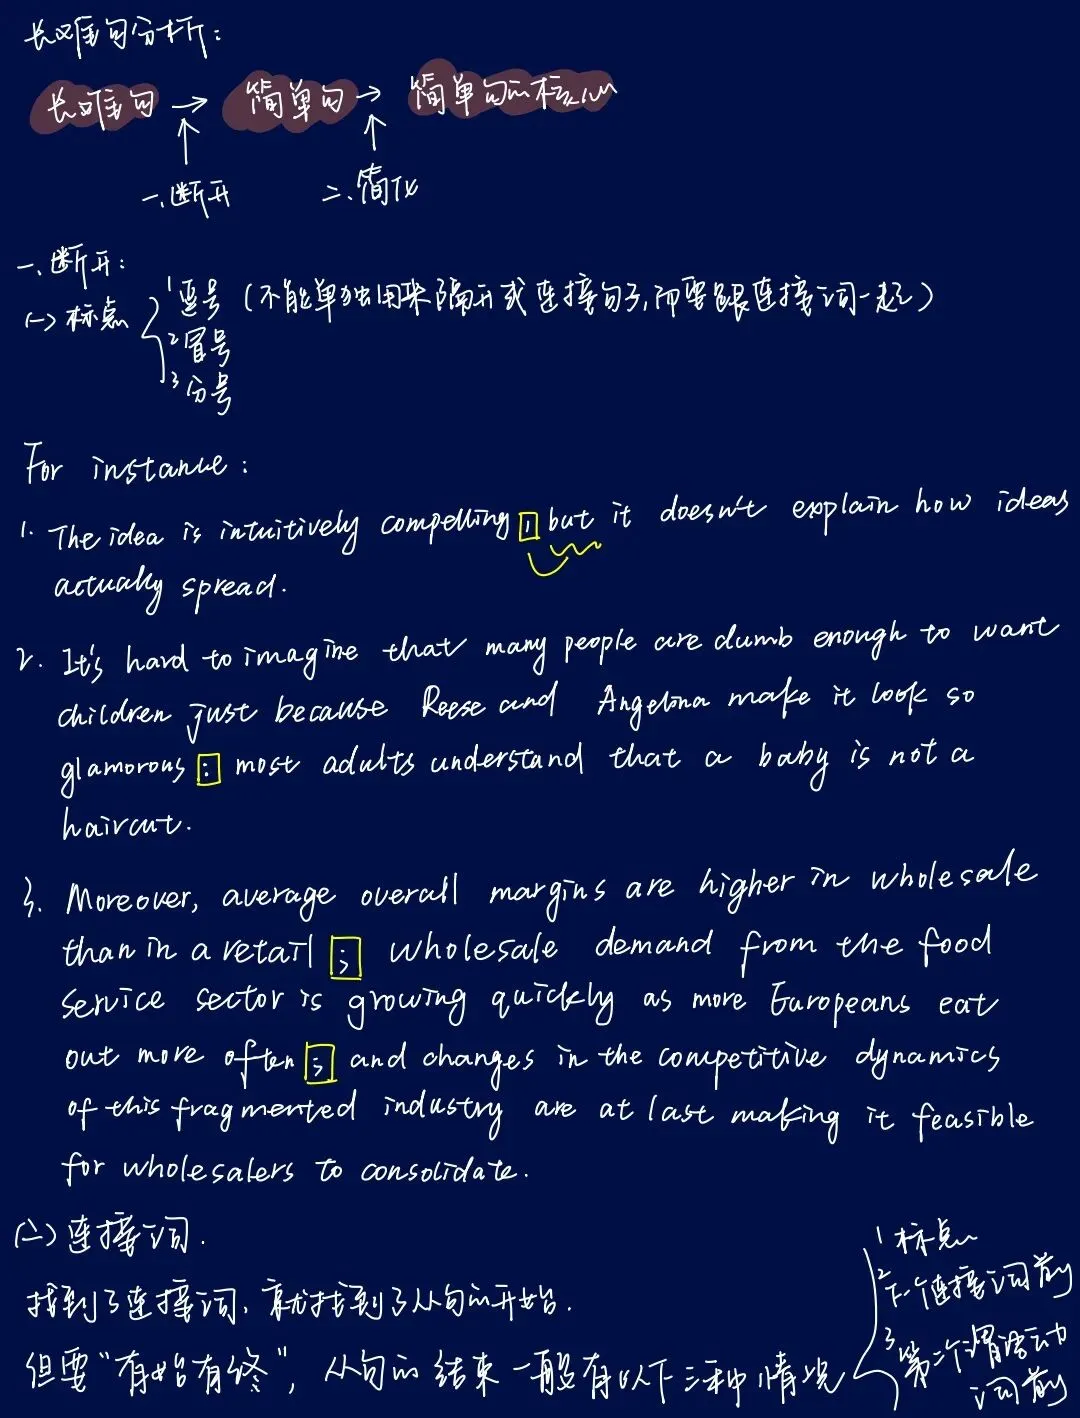 长难句分析:
长难句 → 简单句 → 简单句的核心
一、断开 二、简化
一、断开:
(一) 标点
1 逗号 (不能单独用来隔开或连接句子,而要跟连接词一起)
2 冒号
3 分号
For instance:
1. The idea is intuitively compelling, but it doesn't explain how ideas
actually spread.
2. It's hard to imagine that many people are dumb enough to want
children just because Reese and Angelina make it look so
glamorous: most adults understand that a baby is not a
haircut.
3. Moreover, average overall margins are higher in wholesale
than in a retail; wholesale demand from the food
service sector is growing quickly as more Europeans eat
out more often; and changes in the competitive dynamics
of this fragmented industry are at last making it feasible
for wholesalers to consolidate.
(二) 连接词.
找到了连接词,就找到了从句的开始.
但要“有始有终”, 从句的结束一般有以下三种情况
1 标点
2 下一个连接词前
3 第二个谓语动
词前